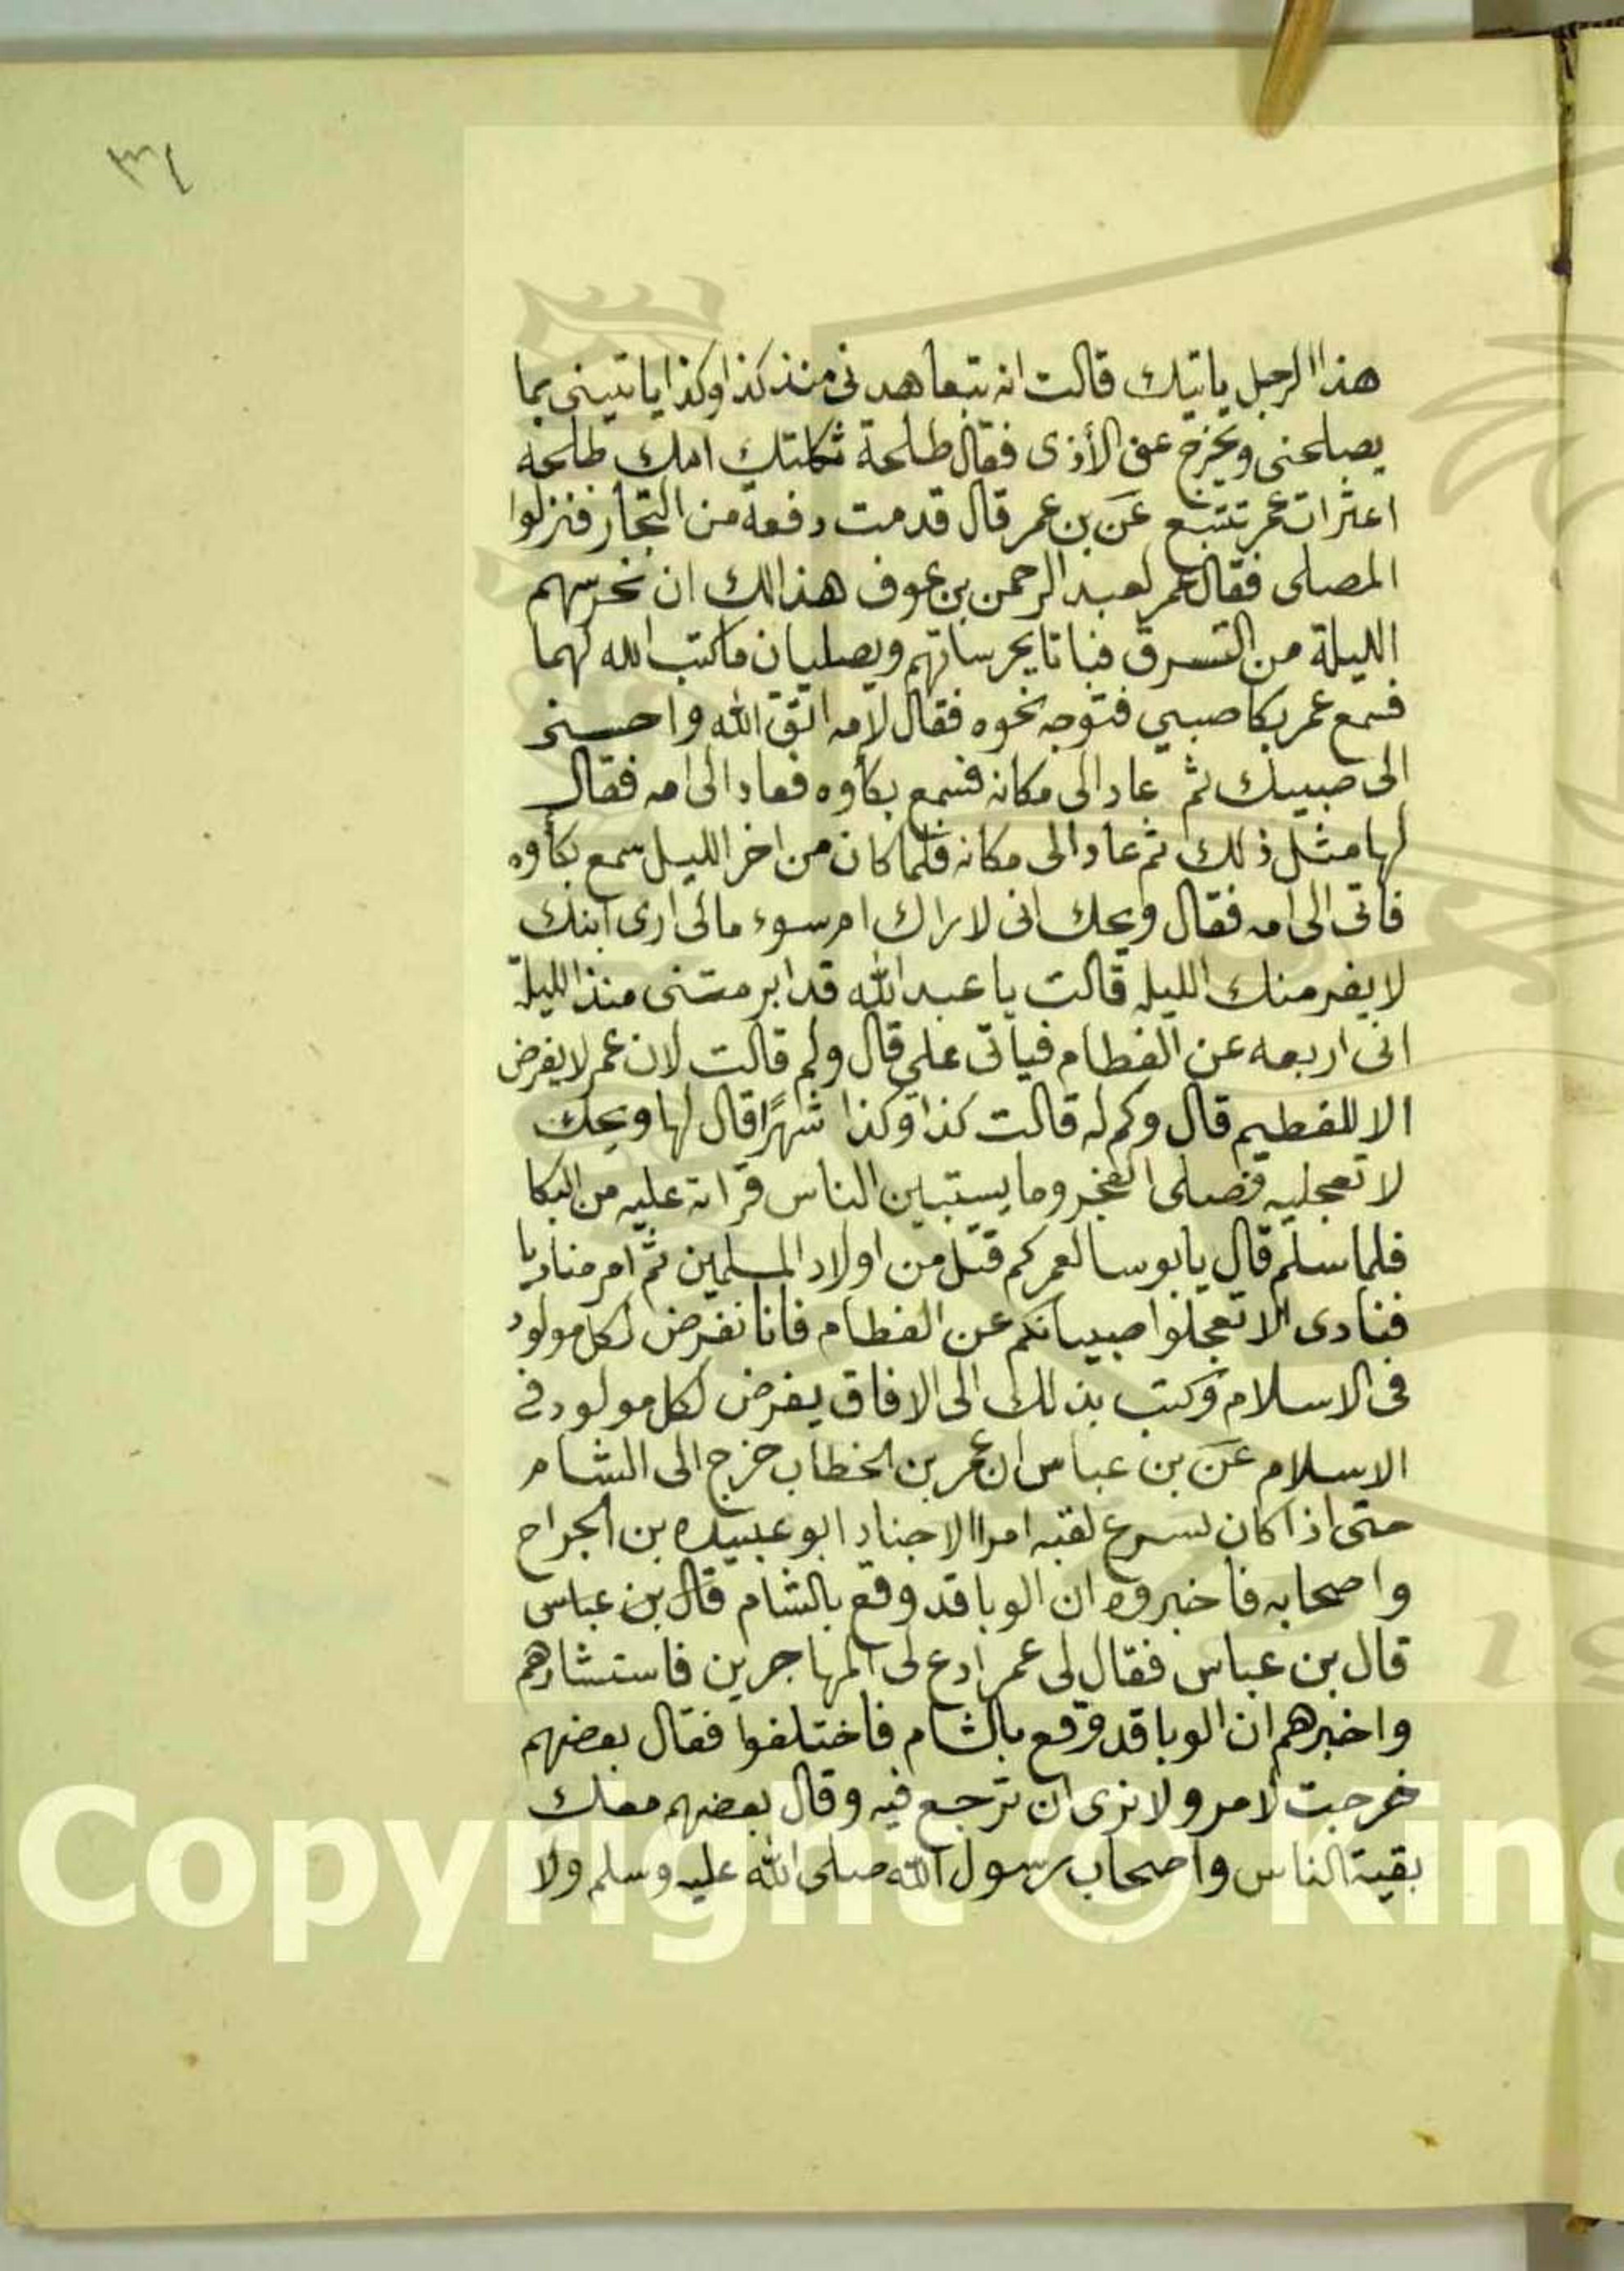 ٣٤
هذا الرجل ياتيك قالت انه تبعاهدنى منذ كذا وكذا ياتينى بما
يصلحنى ويخرج عنى الأذى فقال طلحة ثكلتك امك طلحه
اعثرات عمر تتبع عَن بن عمر قال قدمت دفعة من التجار فنزلوا
المصلى فقال عمر لعبد الرحمن بن عوف هذالك ان نحرسهم
الليلة من السرق فباتا يحرسانهم ويصليان ماكتب الله لهما
فسمع عمر بكا صبي فتوجه نحوه فقال لامه اتق الله واحسنى
الى صبيك ثم عاد الى مكانه فسمع بكاوه فعاد الى امه فقال
لها مثل ذلك ثم عاد الى مكانه فلما كان من اخر الليل سمع بكاوه
فاتى الى امه فقال ويحك انى لاراك ام سوء مالى ارى ابنك
لا يفر منك الليله قالت يا عبد الله قد ابرمتنى منذ الليلة
انى اربعه عن الفطام فياتى علي قال ولم قالت لان عمر لا يفرض
الا للفطيم قال وكم له قالت كذا وكذا شهرًا قال لها ويحك
لا تعجليه فصلى الفجر وما يستبين الناس قراته عليه من البكا
فلما سلم قال يابوسا لعمر كم قتل من اولاد المسلمين ثم امر مناديا
فنادى الا تعجلوا صبيانكم عن الفطام فانا نفرض لكل مولود
فى الاسلام وكتب بذلك الى الافاق يفرض لكل مولود فى
الاسلام عَن بن عباس ان عمر بن الخطاب خرج الى الشام
حتى اذا كان بسرع لقيه امرا الاجناد ابو عبيده بن الجراح
واصحابه فاخبروه ان الوبا قد وقع بالشام قال بن عباس
قال بن عباس فقال لى عمر ادع لى المهاجرين فاستشارهم
واخبرهم ان الوبا قد وقع بالشام فاختلفوا فقال بعضهم
خرجت لامر ولا نرى ان ترجع فيه وقال بعضهم معك
بقية الناس واصحاب رسول الله صلى الله عليه وسلم ولا
Copyright © King